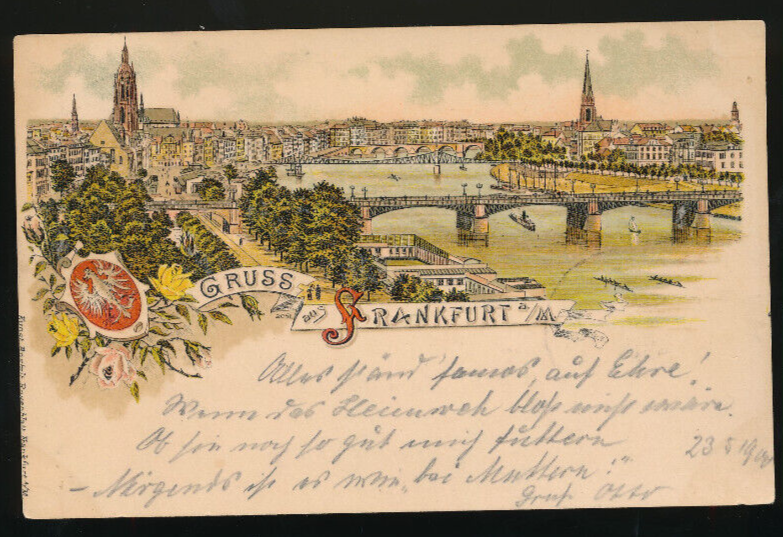 GRUSS
aus
FRANKFURT a/M.
Alles ständ famos, auf Ehre!
Wenn das Heimweh bloß nicht wäre.
Ob sie noch so gut mich füttern
– Nirgends ist es wie „bei Muttern!"
23 5 19
Gruß Otto